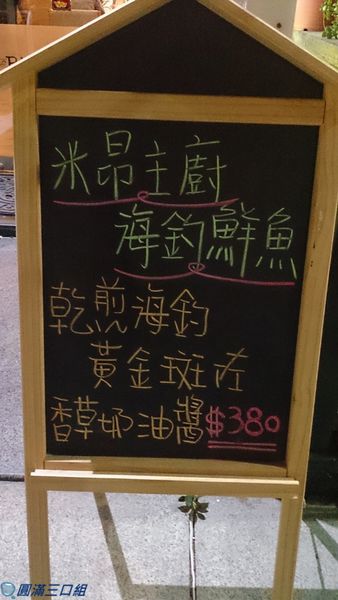 米昂主廚
海釣鮮魚
乾煎海釣
黃金斑佐
香草奶油醬$380
圓滿三口組